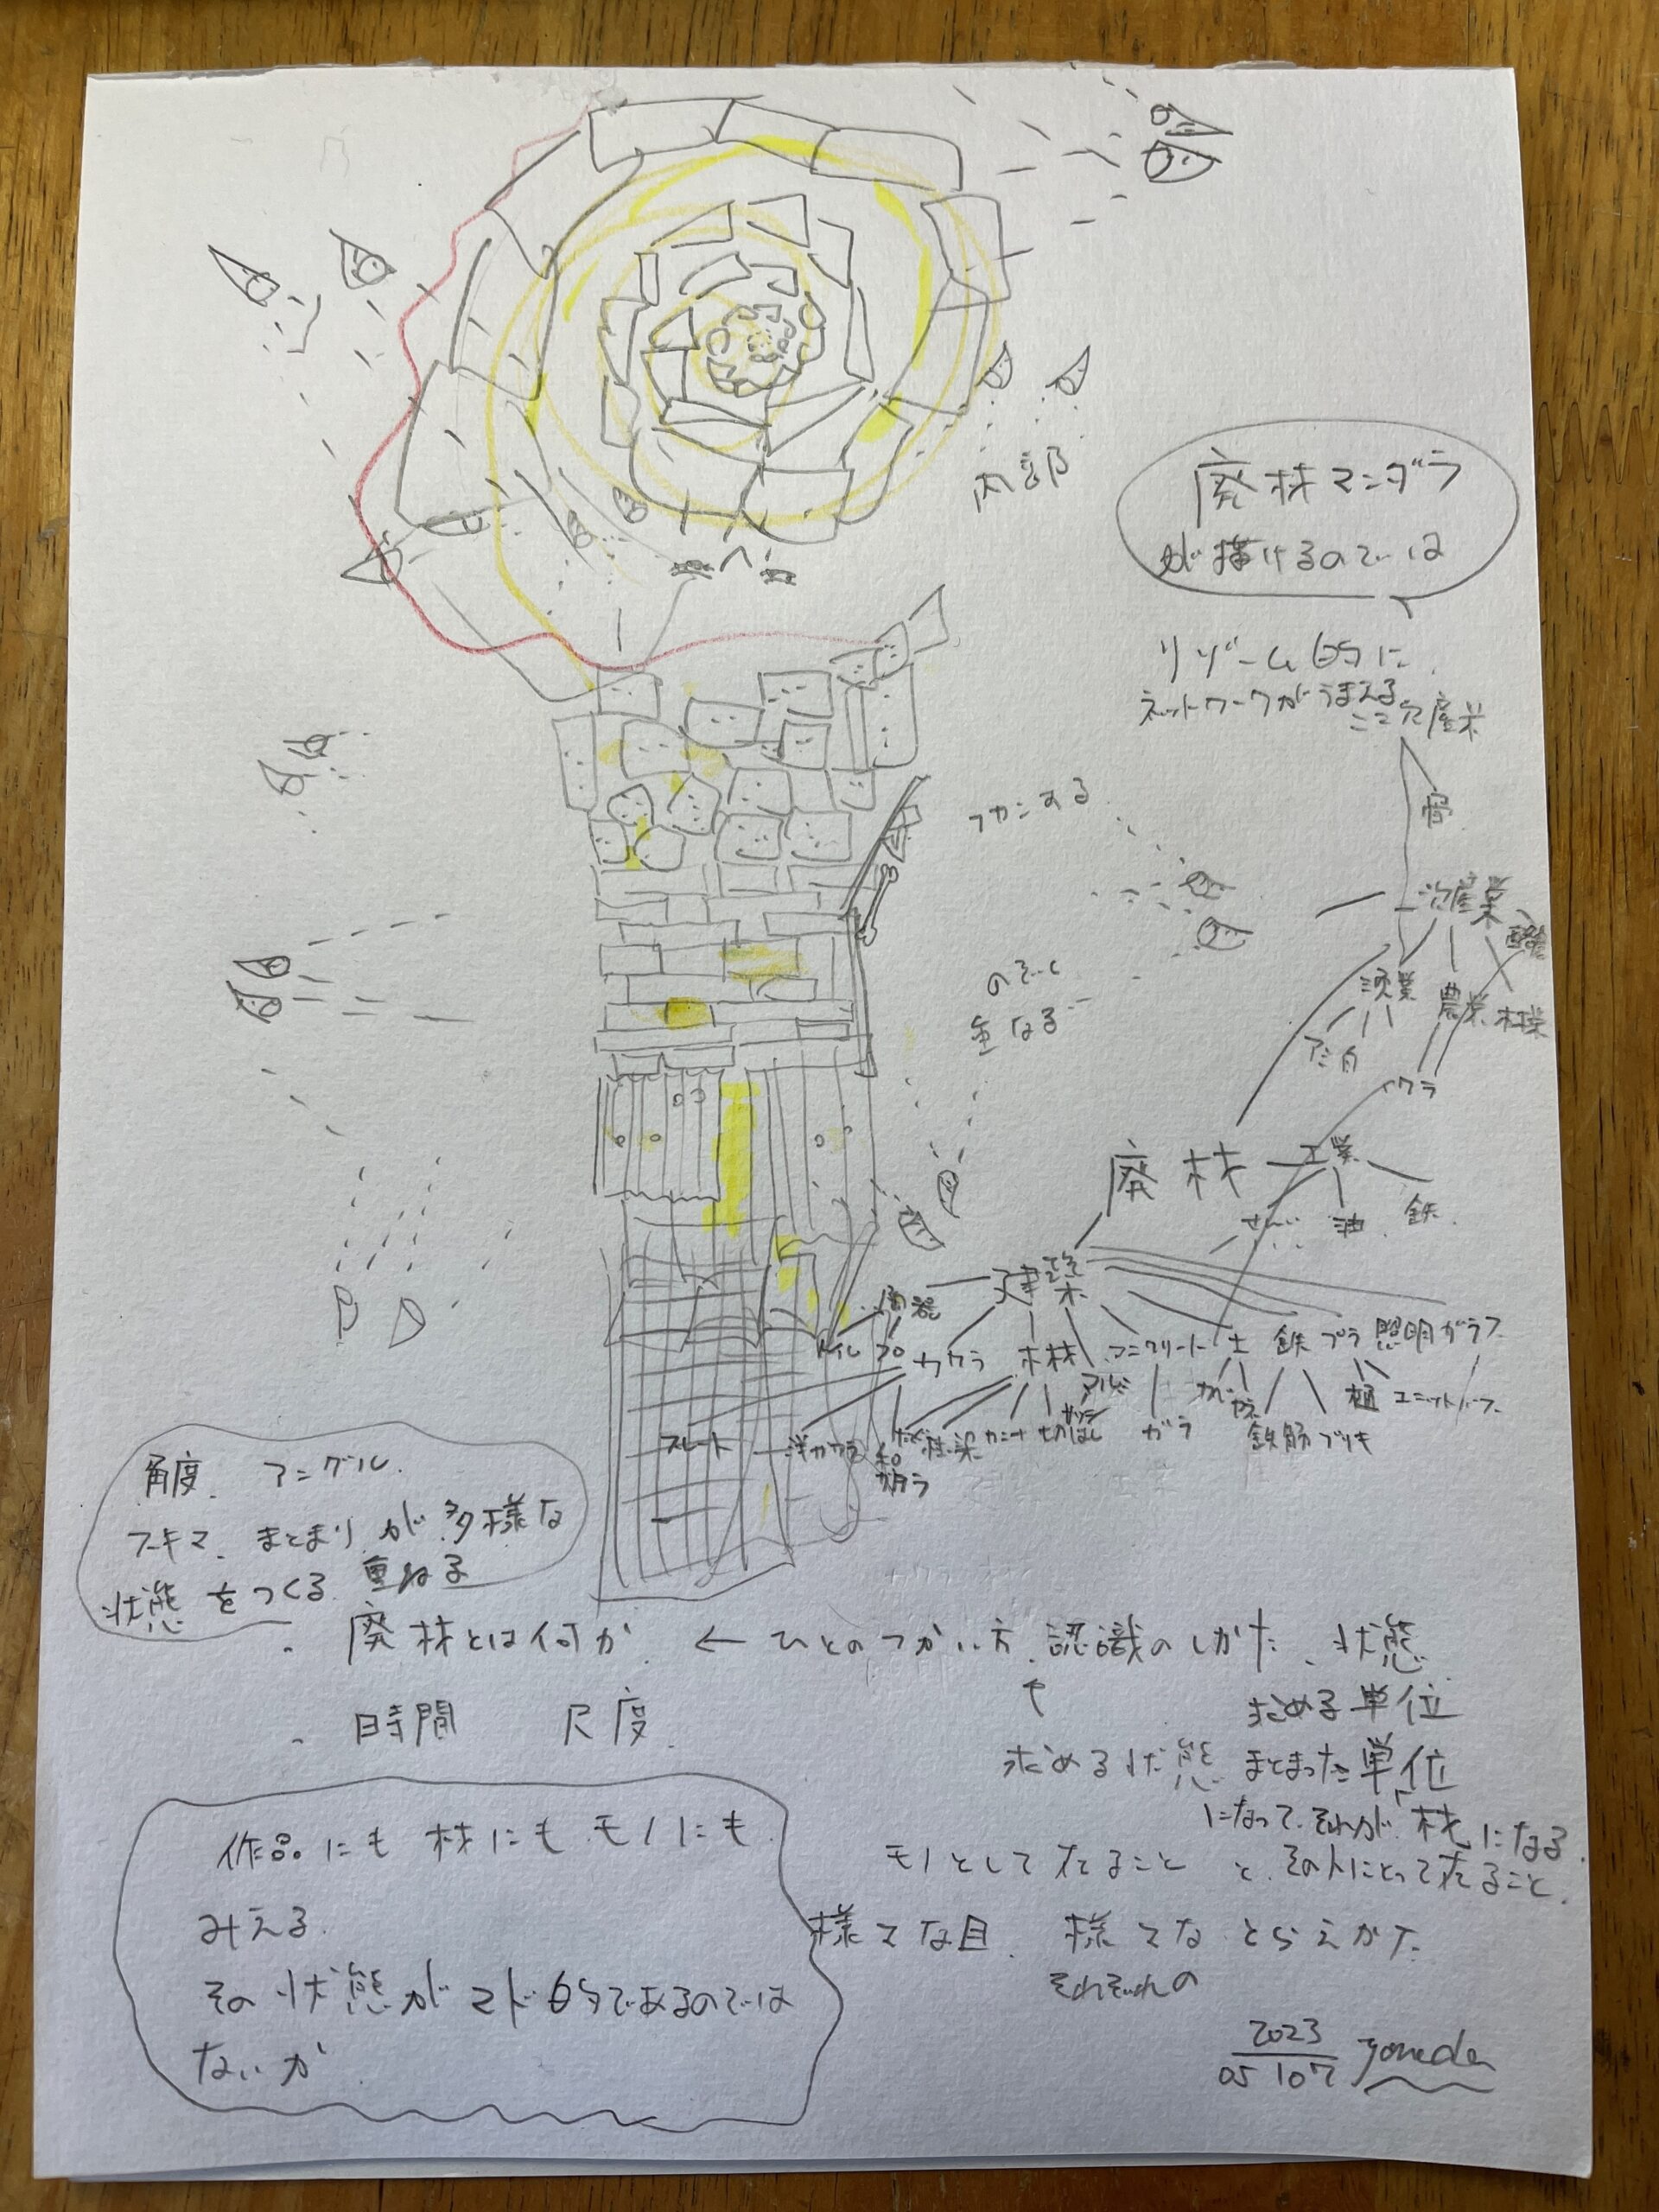 内部
廃材マンダラ
が描けるのでは
リゾーム的に
ネットワークがうまえる
骨
漁業
農業
林業
ワラ
のぞく
重なる
廃材
工業
油
鉄
建築
陶器
トイレ
カワラ
木材
コンクリート
土
鉄
プラ
照明
ガラス
スレート
洋ガワラ
和
柱
梁
カンナ
ガラ
鉄筋
ブリキ
樋
ユニットバス
角度 アングル
スキマ まとまり が 多様な
状態をつくる 重ねる
・廃材とは何か ← ひとのつかい方、認識のしかた、状態
求める単位
・時間 尺度
求める状態 まとまった単位
になって、それが、材になる
作品にも材にもモノにも
みえる
その状態がマド的であるのでは
ないか
モノとして在ること と、その人にとって在ること
様々な目 様々なとらえかた
それぞれの
2023
05 107 yoneda